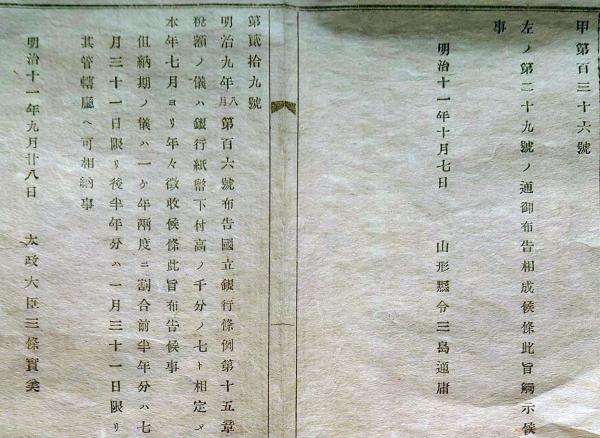 甲第百三十六號
左ノ第二十九號ノ通御布告相成候條此旨觸示候
事
明治十一年十月七日　山形縣令三島通庸
第貳拾九號
明治九年八月第百六號布告國立銀行條例第十五章
税額ノ儀ハ銀行紙幣下付高ノ千分ノ七ト相定メ
本年七月ヨリ年々徴收候條此旨布告候事
但納期ノ儀ハ一ケ年兩度ニ割合前半年分ハ七
月三十一日限リ後半年分ハ一月三十一日限リ
其管轄廳ヘ可相納事
明治十一年九月廿八日　太政大臣三條實美